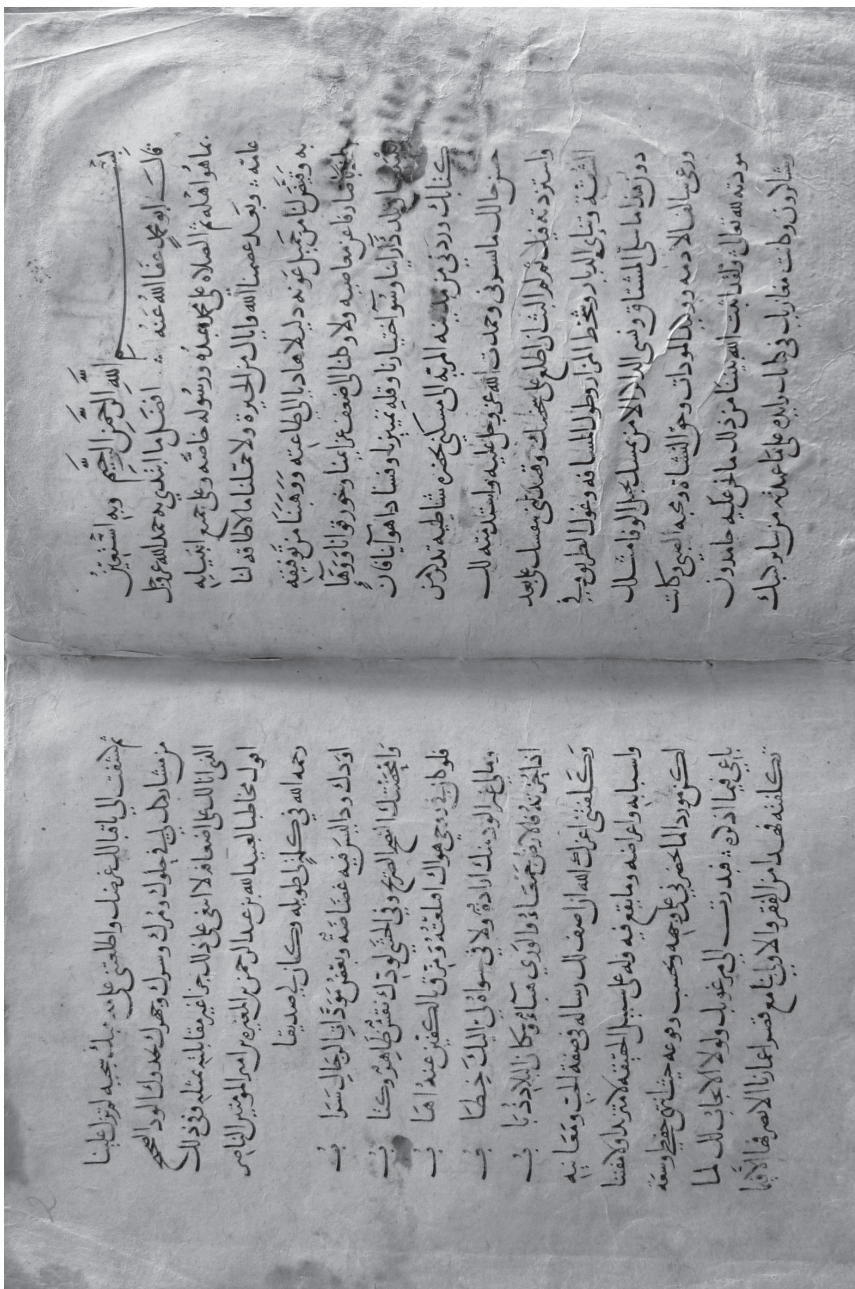 بسم الله الرحمن الرحيم وبه استعين
قال ابو محمد عفا الله عنه افضل ما ابتدئ به حمد الله عز وجل
بما هو اهله ثم الصلاة على محمد عبده ورسوله خاصة وعلى جميع انبيايه
عامة وبعد عصمنا الله واياك من الحيرة ولا حملنا ما لا طاقة لنا
به وقيض لنا من جميل عونه دليلا هاديا الى طاعته ووهبنا من توفيقه
صارفا عن معاصيه ولا وكلنا الى ضعف عزايمنا وخور قوانا ووهآ
وتلدد ارآينا وسوء اختيارنا وقلة تمييزنا وفساد اهوآينا فان
كتابك وردني من مدينة المرية الى مسكني بحضرة شاطبة تذكر من
حسن حالك ما يسرني وحمدت الله عز وجل عليه واستدمته لك
واستزدته فيك ثم لم البث ان اطلع علي شخصك وقصدتني بنفسك على بعد
الشقة وتنائي الديار وشحط المزار وطول المسافة وغول الطريق وفي
دون هذا ما سلى المشتاق ونسى الذاكر الا من تمسك بحبل الوفا مثلك
ورعى سالف الاذمة ووكيد المودات وحق النشاة ومحبة الصبى وكانت
مودته لله تعالى ولقد اثبت الله بيننا من ذلك ما نحن عليه حامدون
وشاكرون وكانت معانيك في كتابك زايدة على ما عهدته من ساير كتبك
ثم كشفت الي باقبالك غرضك واطلعتني على مذهبك سجية لم تزل علينا
من مشاركتك لي في حلوك ومرك وسرك وجهرك يحدوك الود الصحيح
الذي انا لك على اضعافه لا ابتغي على ذلك جزا غير مقابلته بمثله وفي ذلك
اقول مخاطبا لعبيد الله بن عبد الرحمن بن المغيرة بن امير المومنين الناصر
رحمه الله في كلمة لي طويلة وكان لي صديقا
اودك ودا ليس فيه غضاضة وبعض مودات الرجال سراب
وامحضتك النصح الصريح وفي الحشى لودك نقش ظاهر وكتاب
فلو كان في روحي هواك اقتلعته ومزق بالكفين عنه اهاب
وما لي غير الود منك ارادة ولا في سواه لي اليك خطاب
اذا حزته فالارض جمعاء والورى هباء وسكان البلاد ذباب
وكلفتني اعزك الله ان اصنف لك رسالة في صفة الحب ومعانيه
واسبابه واعراضه وما يقع فيه وله على سبيل الحقيقة لا متزيدا ولا مفتنا
لكن موردا لما يحضرني على وجهه وبحسب وقوعه حيث انتهى حفظي وسعة
باعي فيما اذكره فبدرت الى مرغوبك ولولا الايجاب لك لما
تكلفته فهذا من الفقر والاولى بنا مع قصر اعمارنا الا نصرفها الا فيما